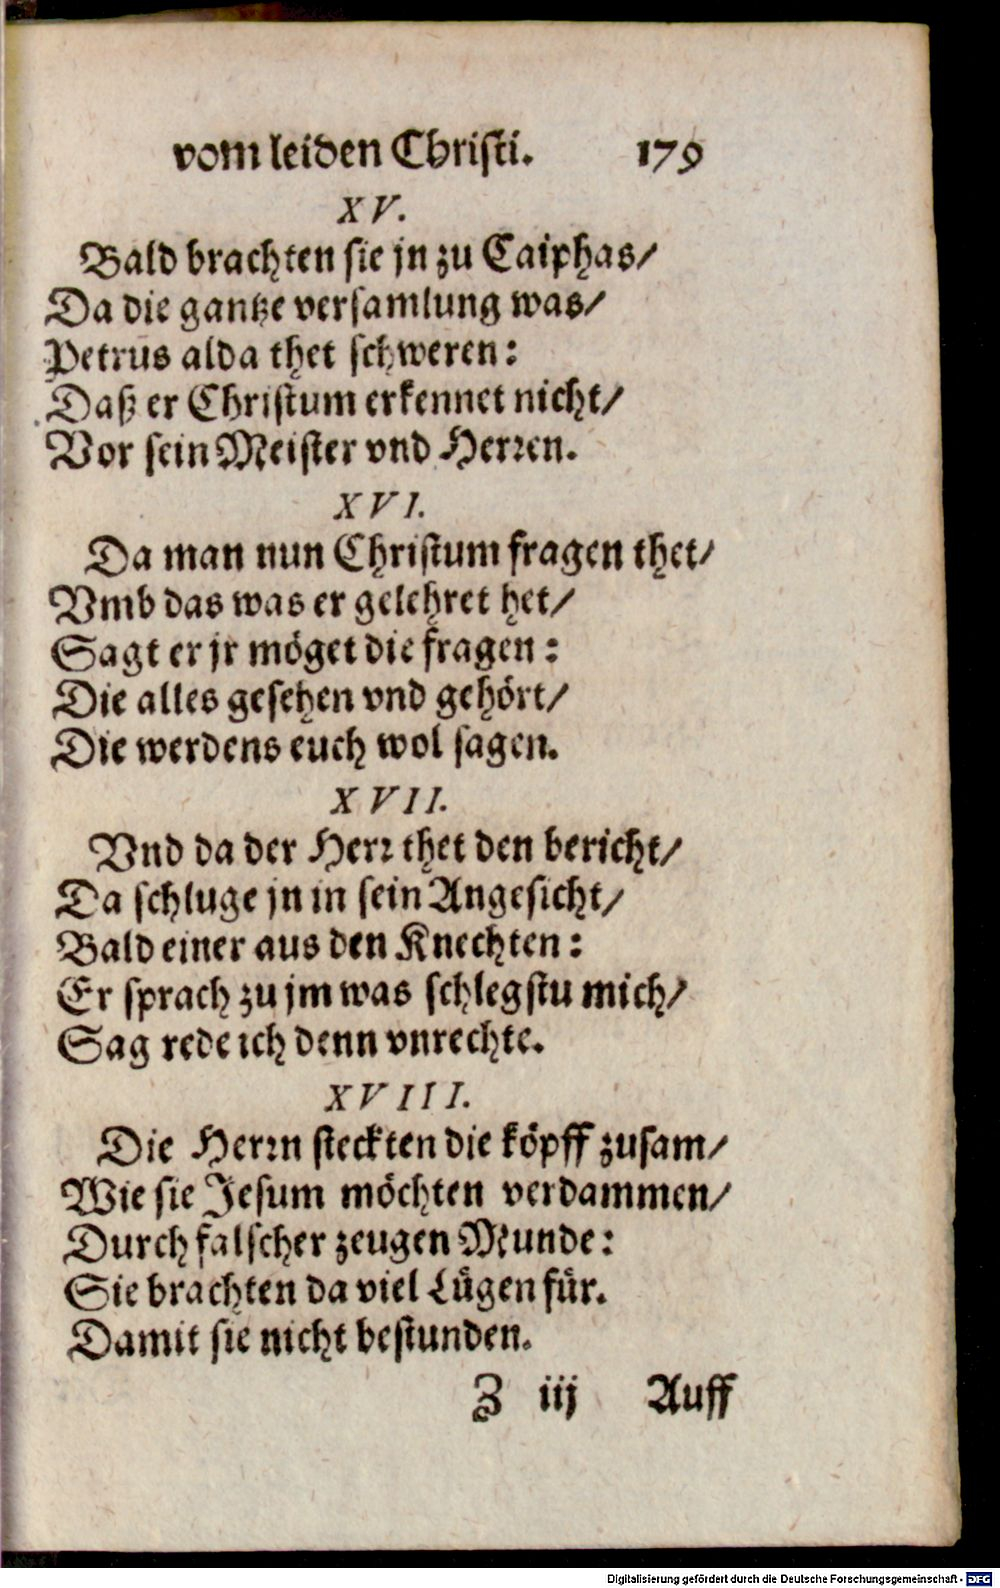 vom leiden Christi. 179
XV.
Bald brachten sie jn zu Caiphas/
Da die gantze versamlung was/
Petrus alda thet schweren:
Daß er Christum erkennet nicht/
Vor sein Meister vnd Herren.
XVI.
Da man nun Christum fragen thet/
Vmb das was er gelehret het/
Sagt er jr möget die fragen:
Die alles gesehen vnd gehört/
Die werdens euch wol sagen.
XVII.
Vnd da der Herr thet den bericht/
Da schluge jn in sein Angesicht/
Bald einer aus den Knechten:
Er sprach zu jm was schlegstu mich/
Sag rede ich denn vnrechte.
XVIII.
Die Herrn steckten die köpff zusam/
Wie sie Jesum möchten verdammen/
Durch falscher zeugen Munde:
Sie brachten da viel Lügen für.
Damit sie nicht bestunden.
Z iij Auff
Digitalisierung gefördert durch die Deutsche Forschungsgemeinschaft - DFG